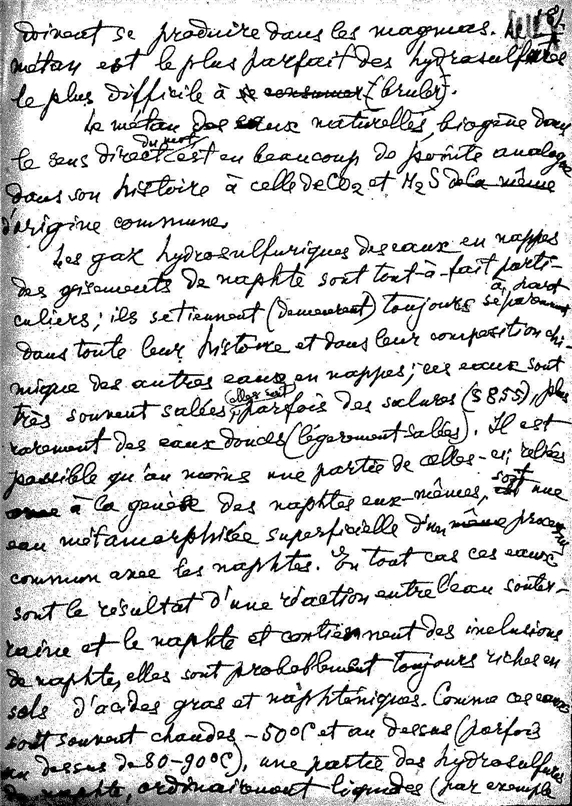 doivent se produire dans les magmas. Le
métan est le plus parfait des hydrosulfures
le plus difficile à se consumer (bruler).
Le métan des eaux naturelles, biogène dans
le sens direct du mot est en beaucoup de points analogue
dans son histoire à celle de CO2 et H2S de la même
d'origine commune.
Les gax hydrosulfuriques des eaux en nappes
des gisements de naphte sont tout-à-fait parti-
culiers; ils se tiennent (demeurent) toujours à part séparement
dans toute leur histoire et dans leur composition chi-
mique des autres eaux en nappes; ces eaux sont
très souvent salées, elles sont parfois des salures (§ 855), plus
rarement des eaux douces (légerement salées). Il est
possible qu'au moins une partie de celles-ci, reliées
à la genèse des naphtes eux-mêmes, soit une
eau métamorphisée superficielle d'un même processus
commun avec les naphtes. En tout cas ces eaux
sont le résultat d'une réaction entre l'eau souter-
raine et le naphte et contiennent des inclusions
de naphte, elles sont probablement toujours riches en
sels d'acides gras et naphténiques. Comme ces eaux
sont souvent chaudes -50°C et au dessus (parfois
au dessus de 80-90°C), une partie des hydrosulfures
de naphte, ordinairement liquides (par exemple